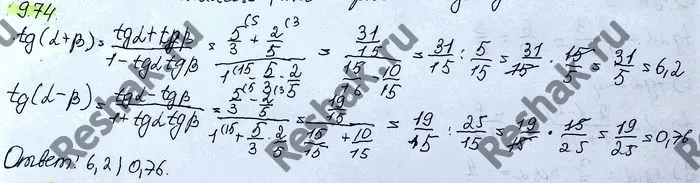 9.74.
tg(α+β) = (tgα+tgβ)/(1-tgαtgβ) = (5/3 + 2/5)/(1 - 5/3 · 2/5) = (31/15)/(15/15 - 10/15) = 31/15 : 5/15 = 31/15 · 15/5 = 31/5 = 6,2
tg(α-β) = (tgα-tgβ)/(1+tgαtgβ) = (5/3 - 2/5)/(1 + 5/3 · 2/5) = (19/15)/(15/15 + 10/15) = 19/15 : 25/15 = 19/15 · 15/25 = 19/25 = 0,76
Ответ: 6,2; 0,76.
Reshak.ru
Reshak.ru
Reshak.ru